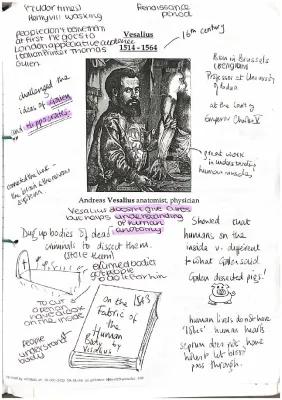 (Tudor times)
Henry VIII was king
Renaissance
period
people don't believe him
at first He goes to
London
Vesalius
1514 - 1564
16th century
Born in Brussels
(Belgium)
Professor at University
of Padua
at the court of
Emperor Charles V
challenged the
ideas of Galen
and Hippocrates
great work
in understanding
human muscles
connected the link -
the brain & the nervous
system
Andreas Vesalius anatomist, physician
Vesalius doesn't give cures
but helps understanding
of human
anatomy
Dug up bodies of dead
criminals to dissect them.
(stole them)
Showed that
humans on the
inside v. different
to what Galen said
Galen dissected pigs!
to do it for him
TO CUT
a person
on the inside
1543
on the
Fabric of
the
Human
Body
by
Vesalius
people
understand
body
human livers do not have
'lobes' human hearts
septum does not have
holes to let blood
pass through.